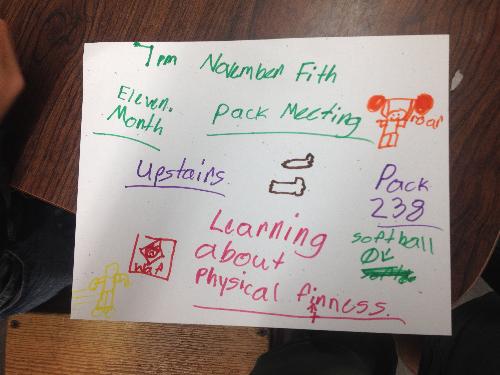 7 pm November Fith
Eleven.
Month
Pack Meeting
roar
Upstairs
Pack
238
Learning
about
physical finness.
softball
or